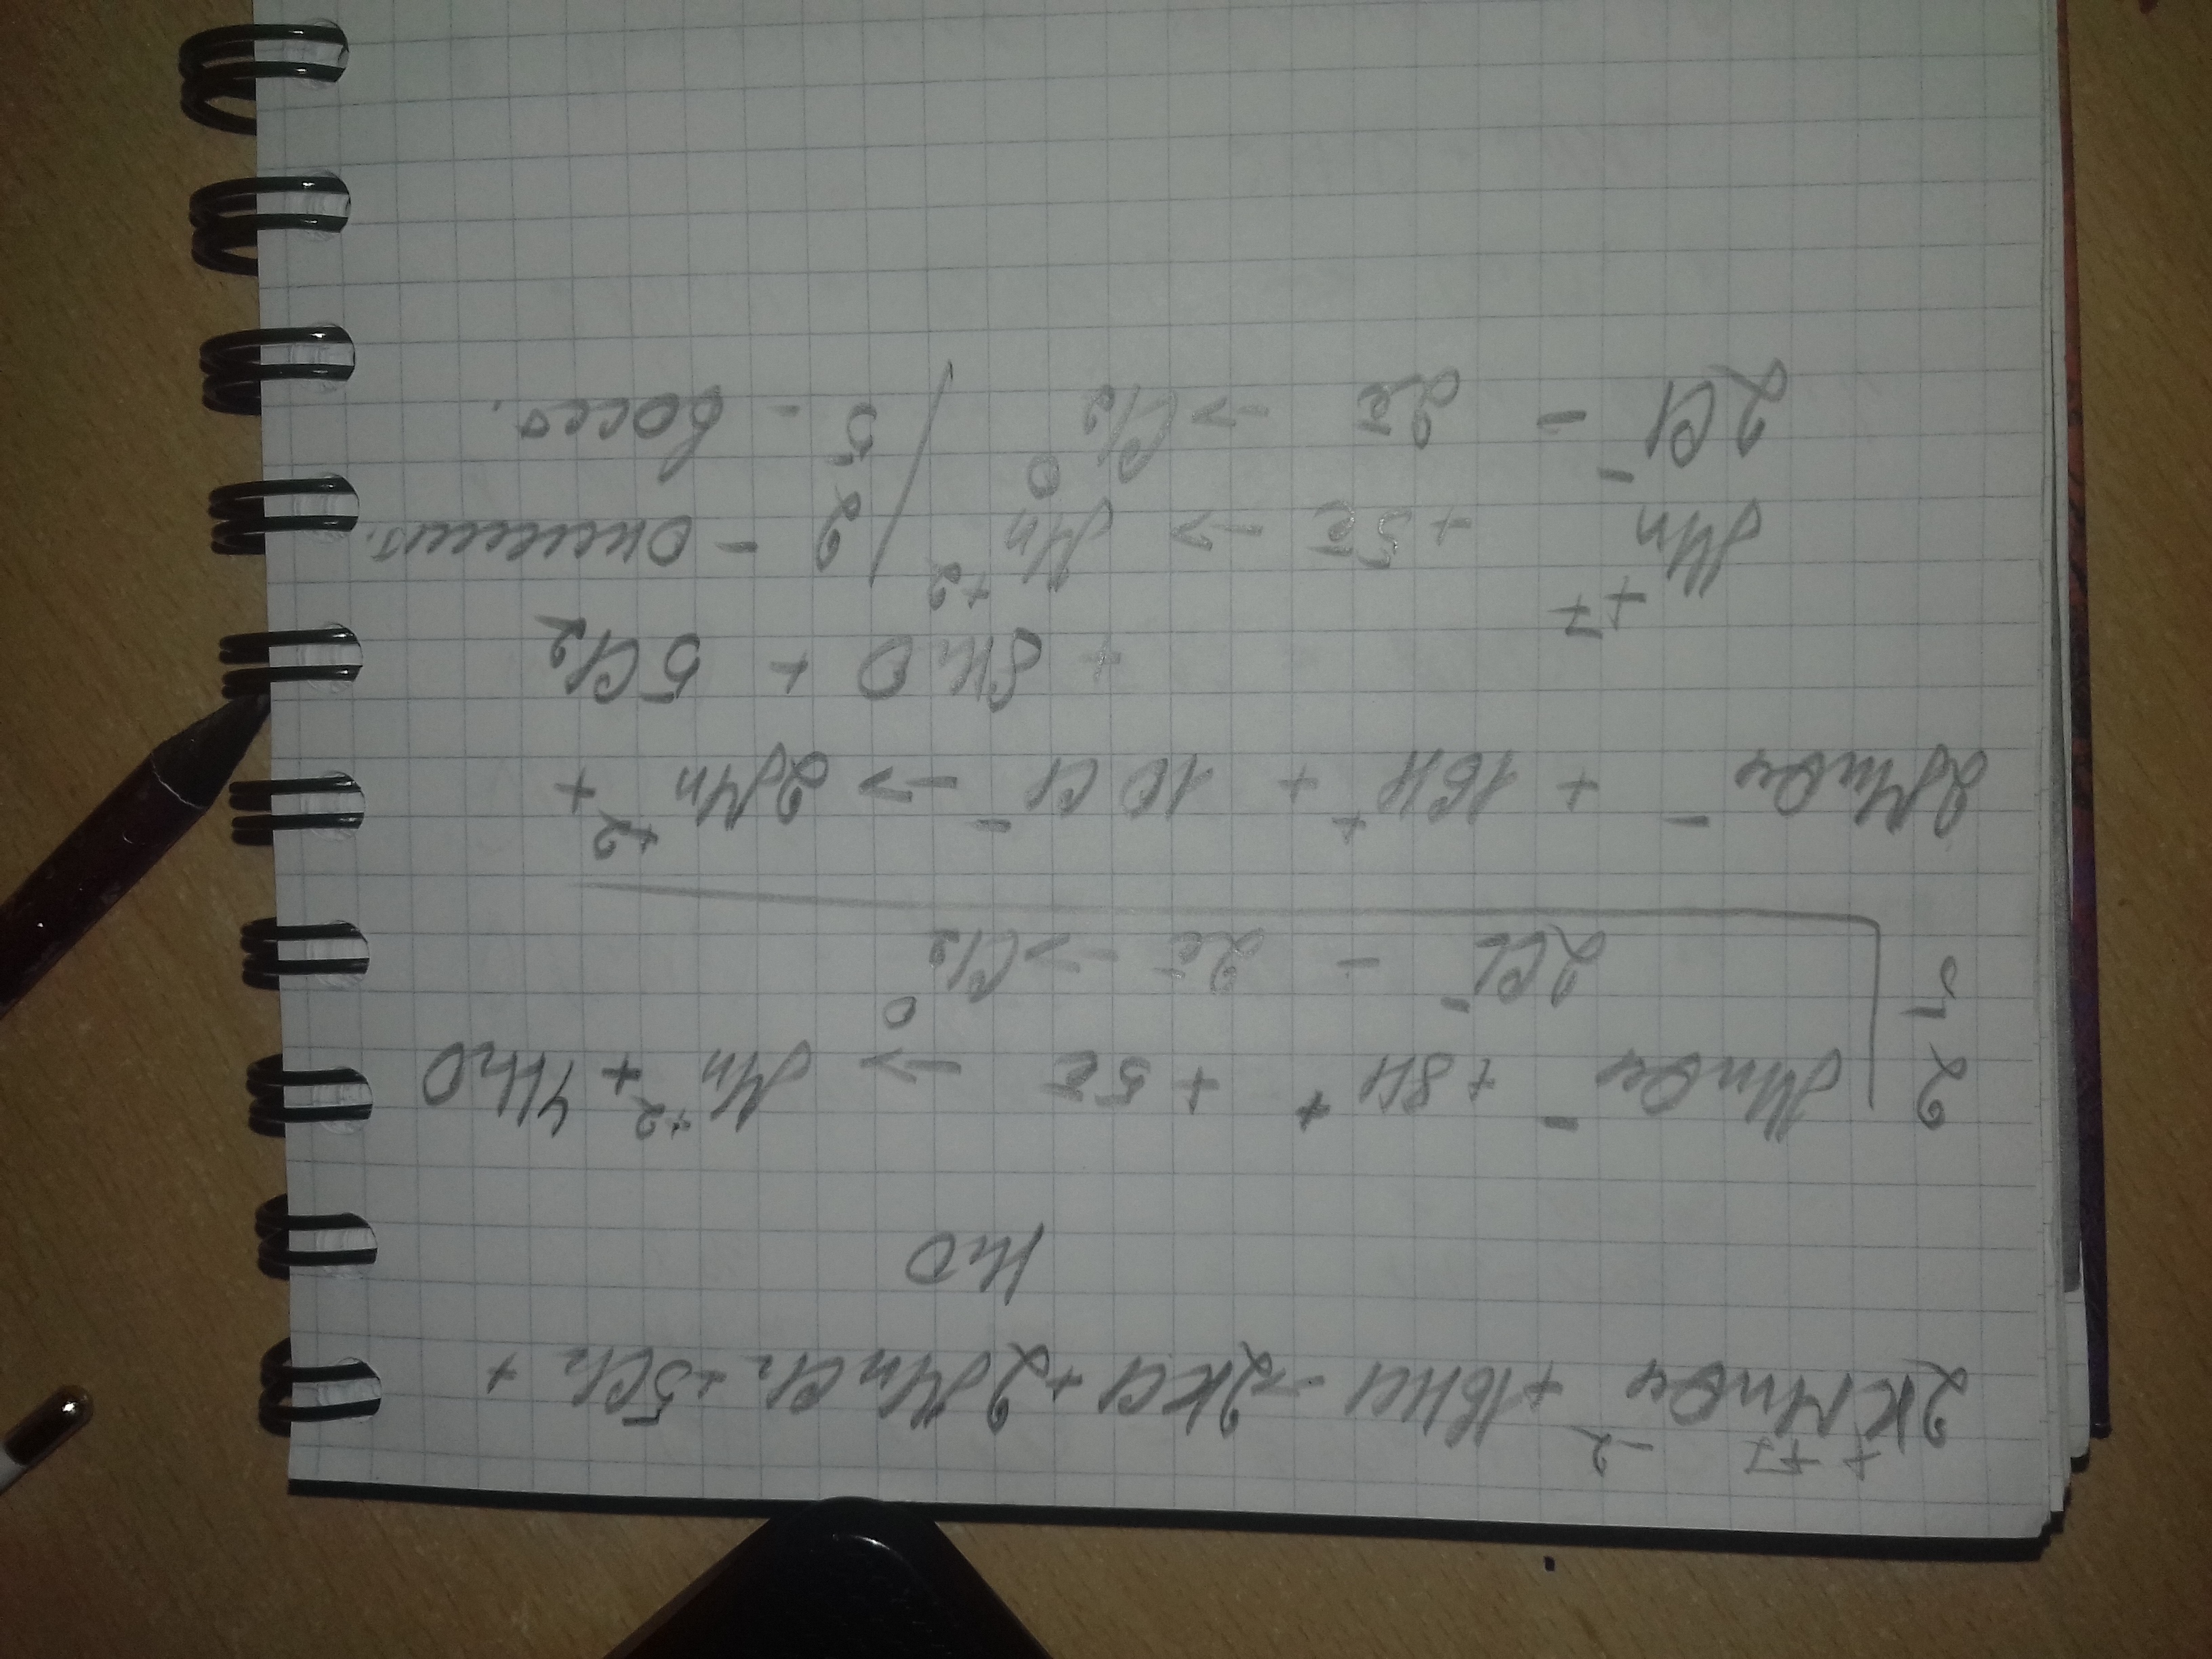 + +7 -2
2KMnO4 + 16HCl → 2KCl + 2MnCl2 + 5Cl2 +
H2O
2 | MnO4⁻ + 8H⁺ + 5ē → Mn⁺² + 4H2O
5 | 2Cl⁻ - 2ē → Cl2⁰
2MnO4⁻ + 16H⁺ + 10Cl⁻ → 2Mn⁺² +
+ 8H2O + 5Cl2
Mn⁺⁷ + 5ē → Mn⁺² / 2 - окислит.
2Cl⁻ - 2ē → Cl2⁰ / 5 - восст.